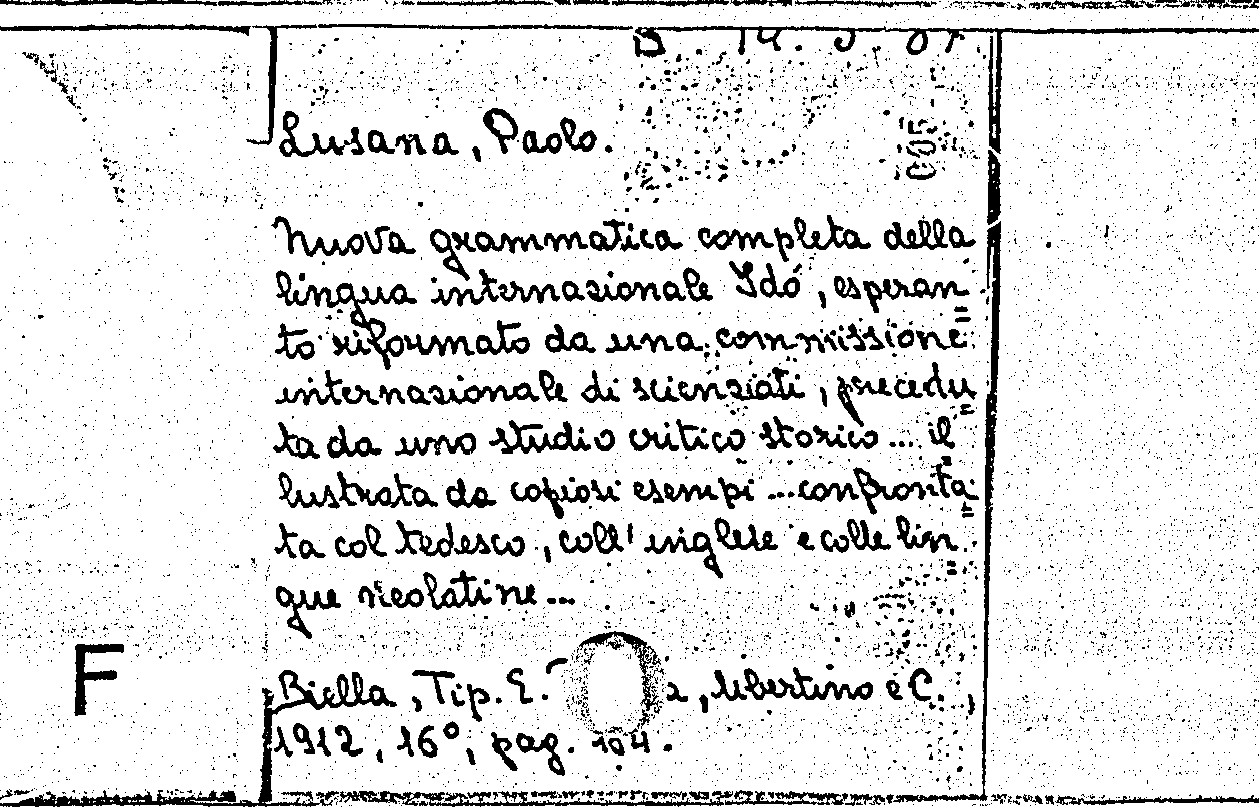 B. 14. J. 87
Lusana, Paolo.
Nuova grammatica completa della
lingua internazionale Idó, esperan=
to riformato da una commissione
internazionale di scienziati, precedu=
ta da uno studio critico storico... il=
lustrata da copiosi esempi... confronta=
ta col tedesco, coll' inglese e colle lin=
gue neolatine...
F
Biella, Tip. E. a, Ubertino e C.,
1912, 16°, pag. 194.